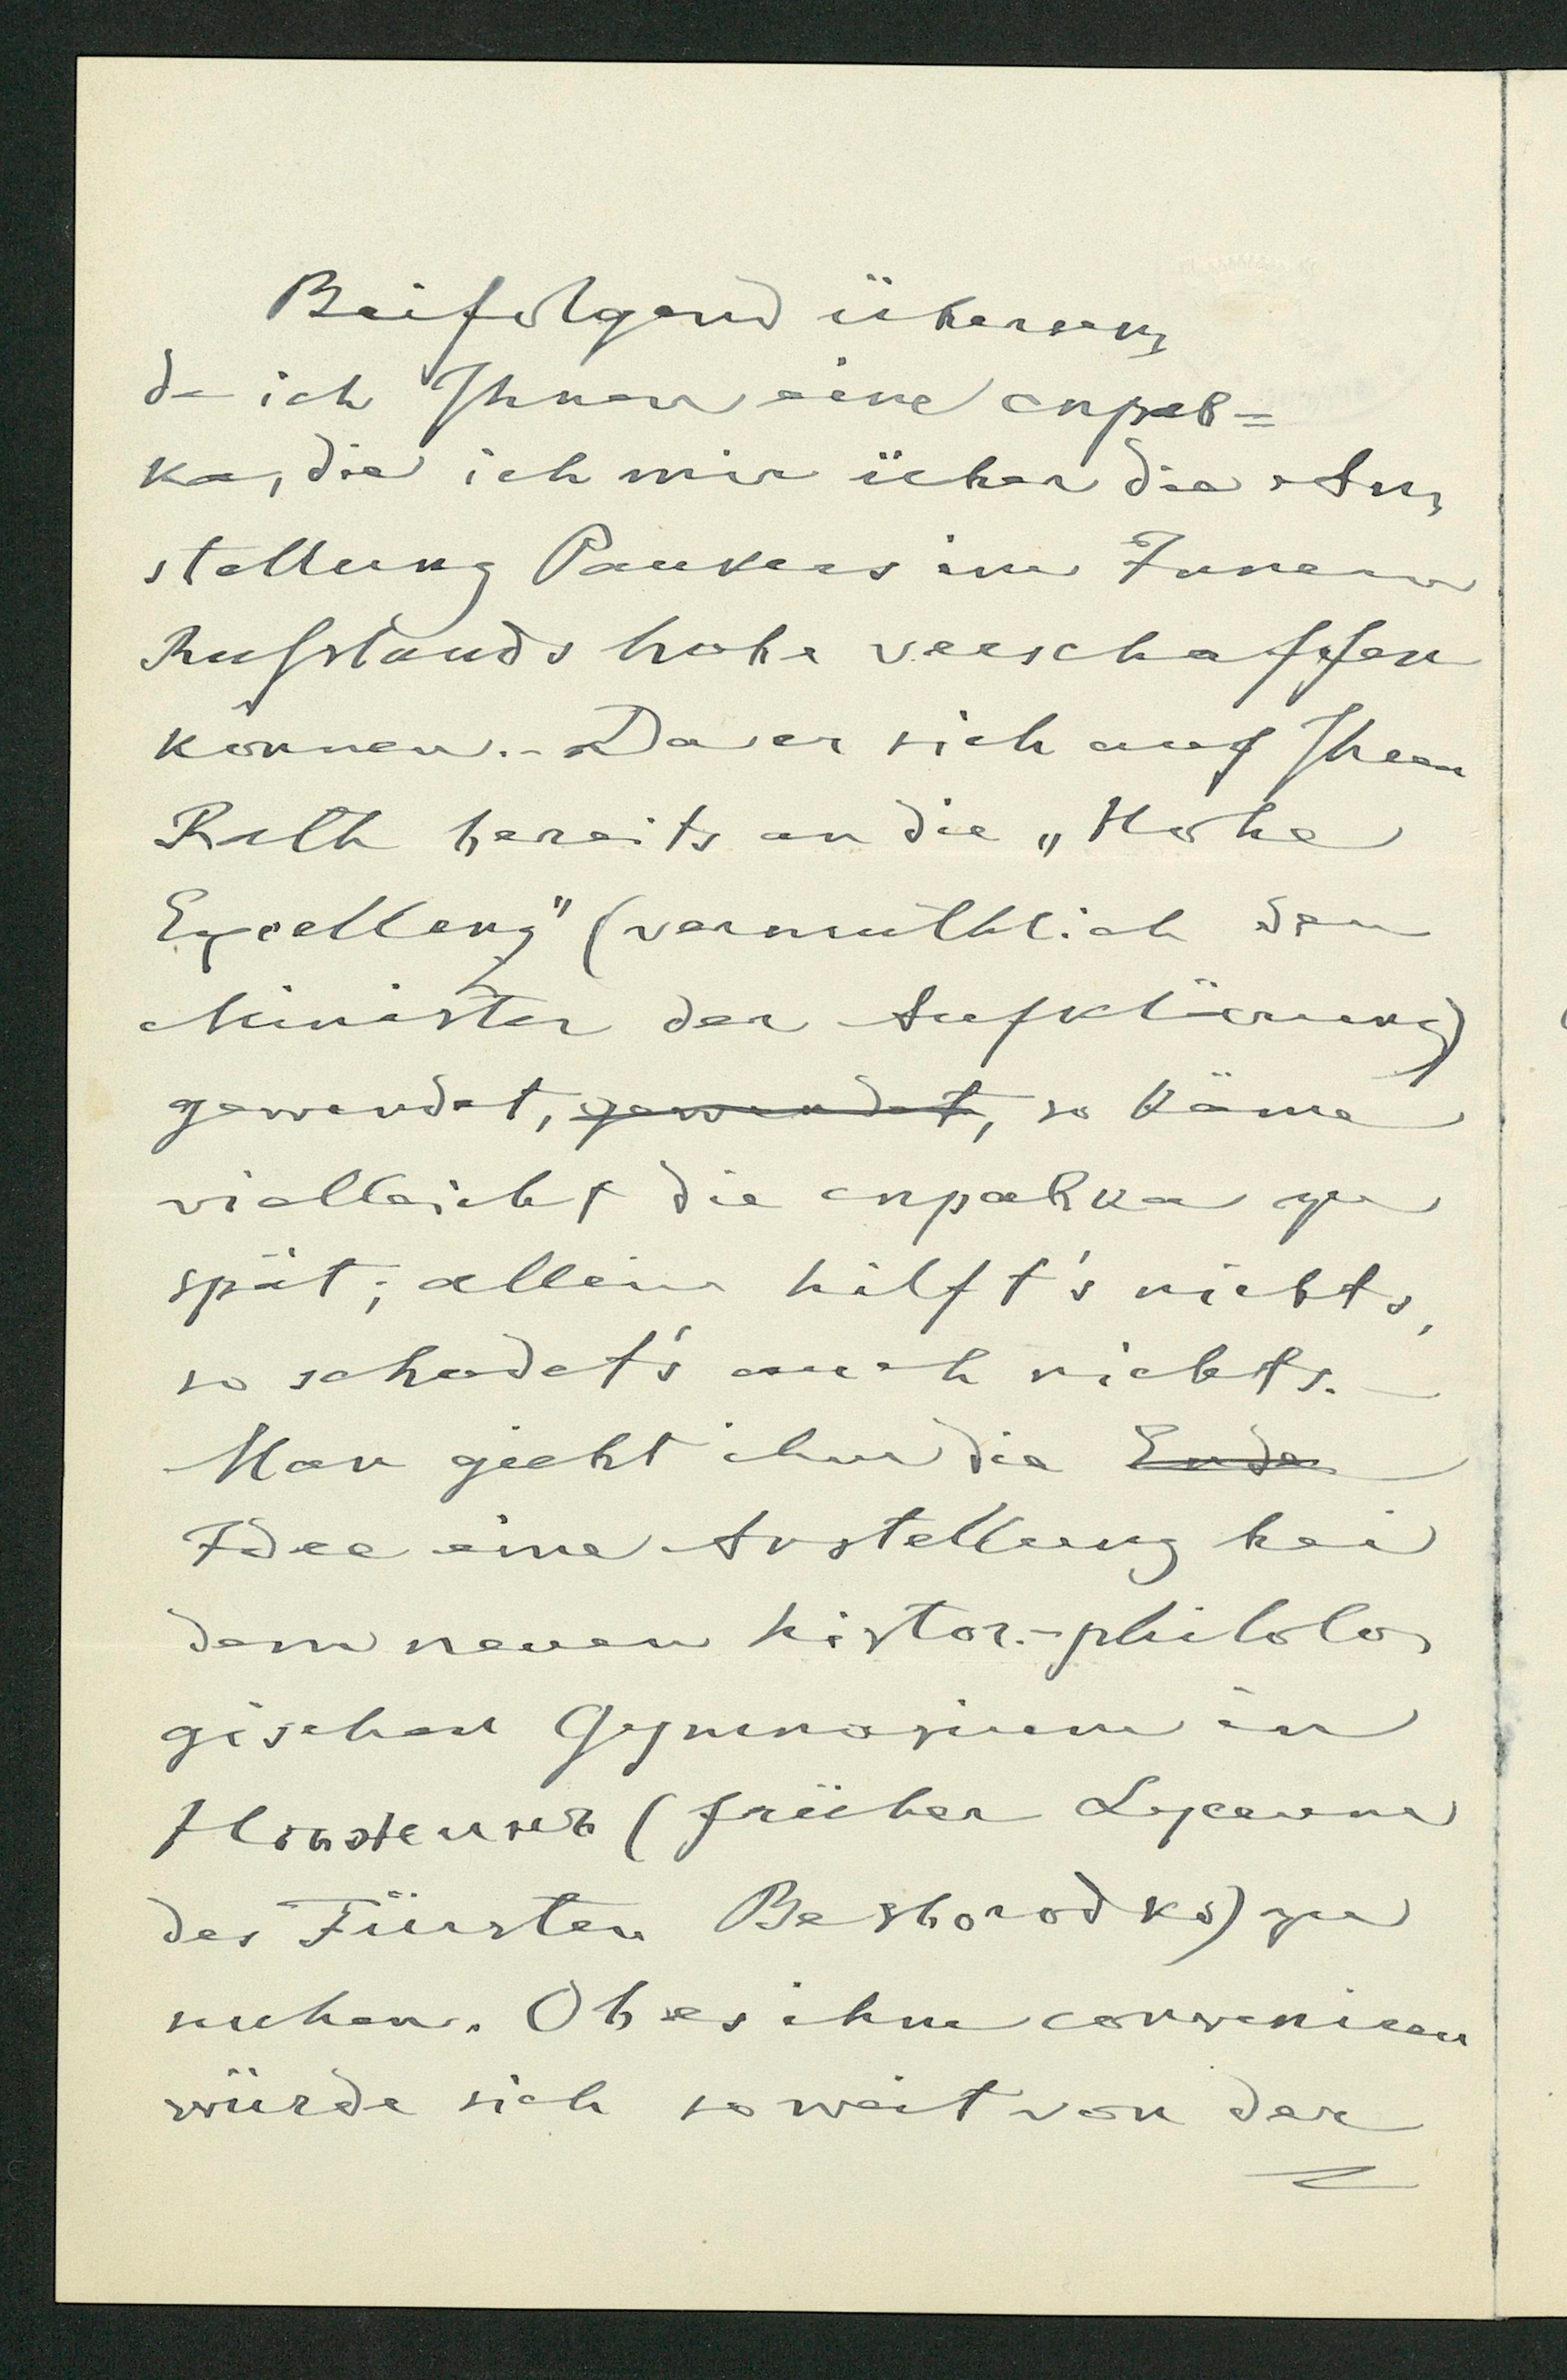 Beifolgend übersen,
de ich Ihnen eine справ=
ка, die ich mir über die An,
stellung Paukers im Innern
Rußlands habe verschaffen
können.- Da er sich auf Ihren
Rath bereits an die „Hohe
Excellenz" (vermuthlich den
Minister der Aufklärung)
gewendet, gewendet, so käme
vielleicht die справка zu
spät; allein hilft's nichts,
so schadet's auch nichts. –
Man giebt ihm die Ende
Idee eine Anstellung bei
dem neuen histor.-philolo,
gischen Gymnasium in
Нѣжинѣ (früher Lyceum
des Fürsten Besborodko) zu
suchen. Ob es ihm convenieren
würde sich so weit von der